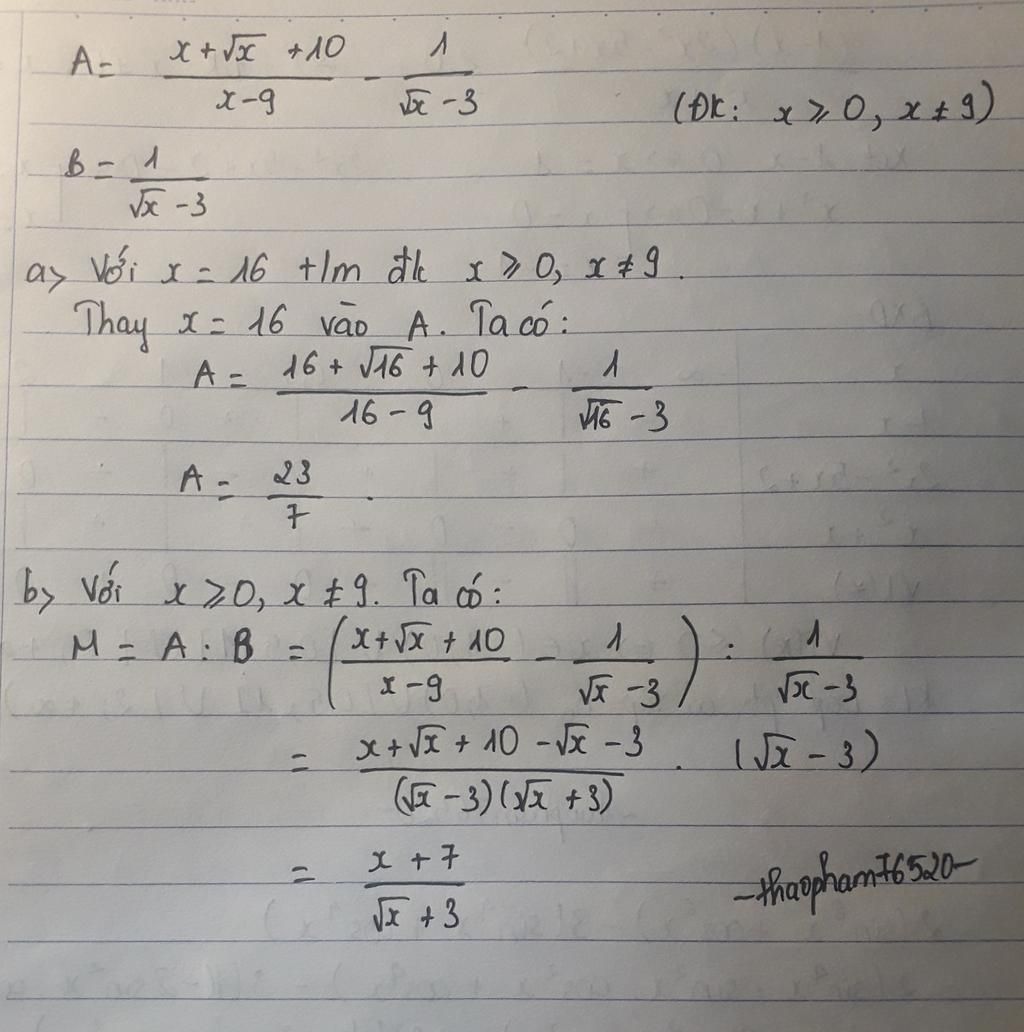 A = (x + √x + 10)/(x - 9) - 1/(√x - 3) (ĐK: x ⩾ 0, x ≠ 9)
B = 1/(√x - 3)
a> Với x = 16 t/m đk x ⩾ 0, x ≠ 9.
Thay x = 16 vào A. Ta có:
A = (16 + √16 + 10)/(16 - 9) - 1/(√16 - 3)
A = 23/7.
b> Với x ⩾ 0, x ≠ 9. Ta có:
M = A : B = ((x + √x + 10)/(x - 9) - 1/(√x - 3)) : 1/(√x - 3)
= (x + √x + 10 - √x - 3)/((√x - 3)(√x + 3)) . (√x - 3)
= (x + 7)/(√x + 3)
-thaopham76520-